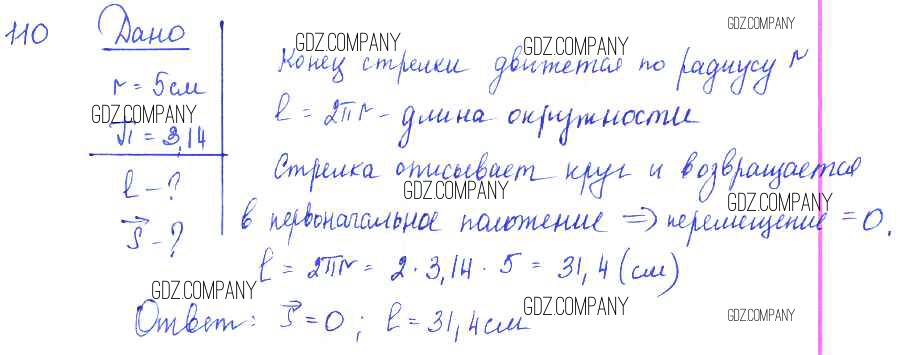 110 Дано
GDZ.COMPANY
GDZ.COMPANY GDZ.COMPANY
Конец стрелки движется по радиусу r
r = 5 см
GDZ.COMPANY
l = 2πr - длина окружности
π = 3,14
Стрелка описывает круг и возвращается
l - ?
GDZ.COMPANY GDZ.COMPANY
в первоначальное положение => перемещение = 0.
S⃗ - ?
l = 2πr = 2 · 3,14 · 5 = 31,4 (см)
GDZ.COMPANY
GDZ.COMPANY GDZ.COMPANY
Ответ: S⃗ = 0 ; l = 31,4 см